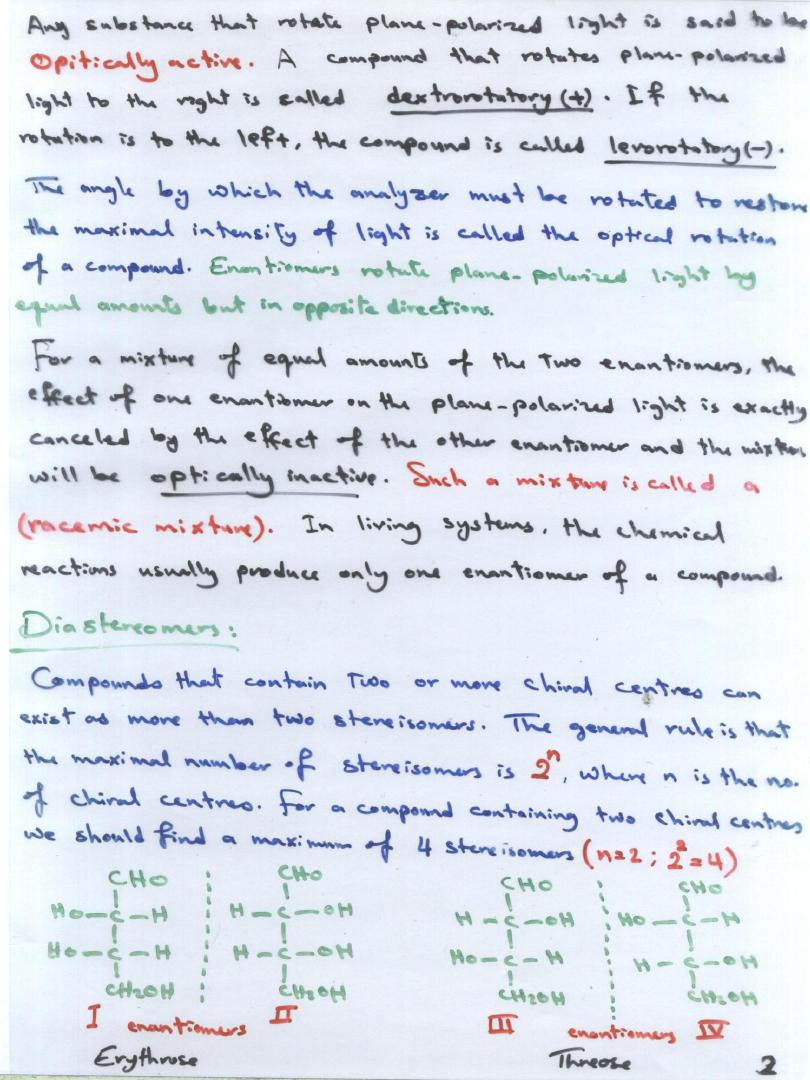 Any substance that rotate plane-polarized light is said to be
Opitically active. A compound that rotates plane-polarized
light to the right is called dextrorotatory (+). If the
rotation is to the left, the compound is called levorotatory(-).
The angle by which the analyzer must be rotated to restore
the maximal intensity of light is called the optical rotation
of a compound. Enantiomers rotate plane-polarized light by
equal amounts but in opposite directions.
For a mixture of equal amounts of the two enantiomers, the
effect of one enantiomer on the plane-polarized light is exactly
canceled by the effect of the other enantiomer and the mixture
will be optically inactive. Such a mixture is called a
(racemic mixture). In living systems, the chemical
reactions usually produce only one enantiomer of a compound.
Diastereomers:
Compounds that contain two or more chiral centres can
exist as more than two stereisomers. The general rule is that
the maximal number of stereisomers is 2^n, where n is the no.
of chiral centres. For a compound containing two chiral centres
we should find a maximum of 4 stereisomers (n=2; 2^2=4)
CHO CHO CHO CHO
HO-C-H H-C-OH H-C-OH HO-C-H
HO-C-H H-C-OH HO-C-H H-C-OH
CH2OH CH2OH CH2OH CH2OH
I enantiomers II III enantiomers IV
Erythrose Threose 2